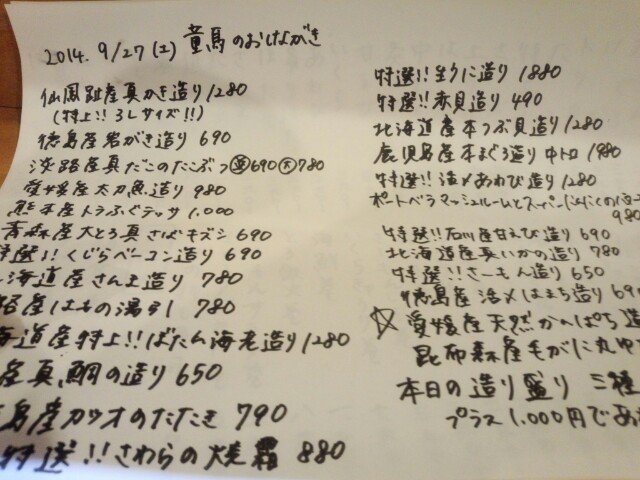 2014. 9/27 (土) 童馬のおしながき
仙鳳趾産真かき造り 1280
(特上!! 3Lサイズ!!)
徳島産岩がき造り 690
淡路産真だこのたこぶつ 690 780
愛媛産太刀魚造り 980
熊本産トラふぐテッサ 1.000
青森産大とろ真さばキズシ 690
特選!! くじらベーコン造り 690
海道産さんま造り 780
路産はもの湯引 780
海道産特上!! ぼたん海老造り 1280
産真鯛の造り 650
島産カツオのたたき 790
特選!! さわらの焼霜 880
特選!! 生うに造り 1880
特選!! 赤貝造り 490
北海道産本つぶ貝造り 1280
鹿児島産本まぐろ造り 中トロ 1980
特選!! 活〆あわび造り 1280
ポートベラマッシュルームとスーパーにんにくの
980
特選!! 石川産甘えび造り 690
北海道産真いかの造り 780
特選!! さーもん造り 650
徳島産活〆はまち造り 690
☆ 愛媛産天然かんぱち造
昆布森産毛がに丸ゆ
本日の造り盛り 三種
プラス 1.000円であ